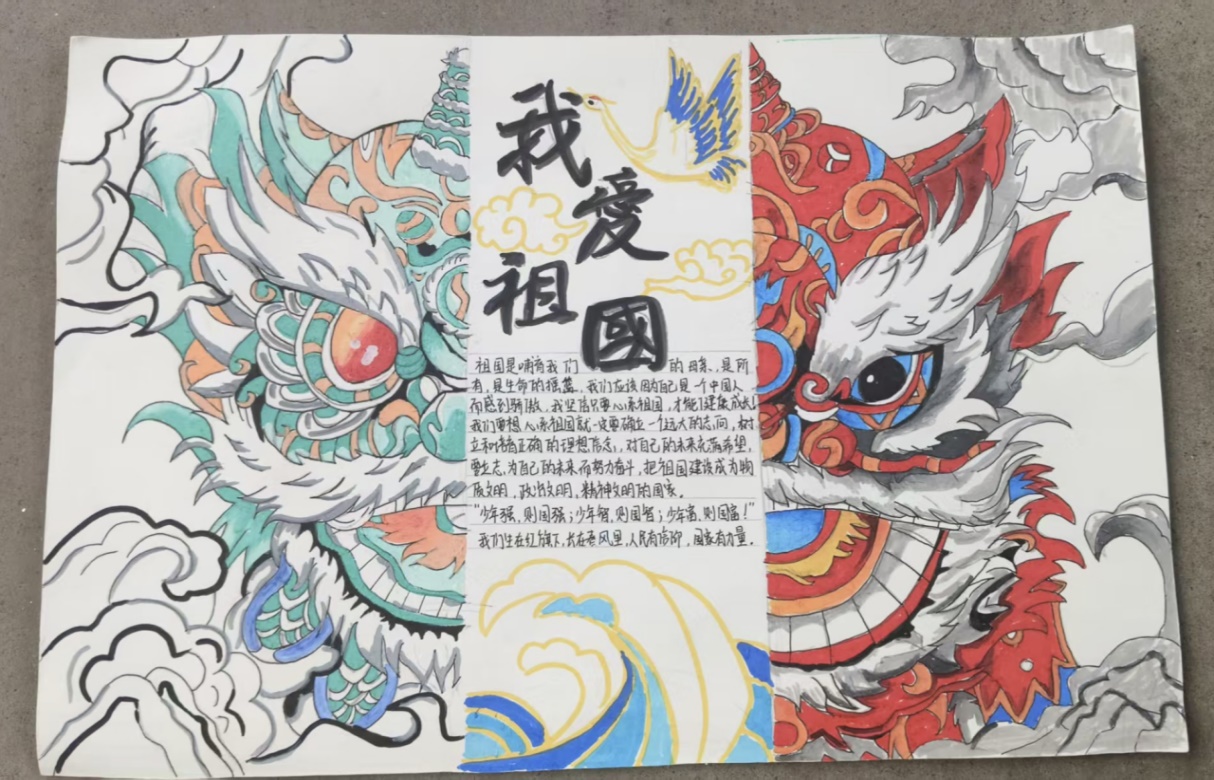 我愛祖國
祖国是哺育我们的母亲,是所
有,是生命的摇篮,我们应该因为自己是一个中国人
而感到骄傲。我坚信只要心系祖国,才能健康成长!
我们要想心系祖国就一定要确立一个远大的志向,树
立和培育正确的理想信念,对自己的未来充满希望,
要立志,为自己的未来而努力奋斗,把祖国建设成为物
质文明,政治文明,精神文明的国家。
“少年强,则国强;少年智,则国智;少年富,则国富!”
我们生在红旗下,长在春风里,人民有信仰,国家有力量。